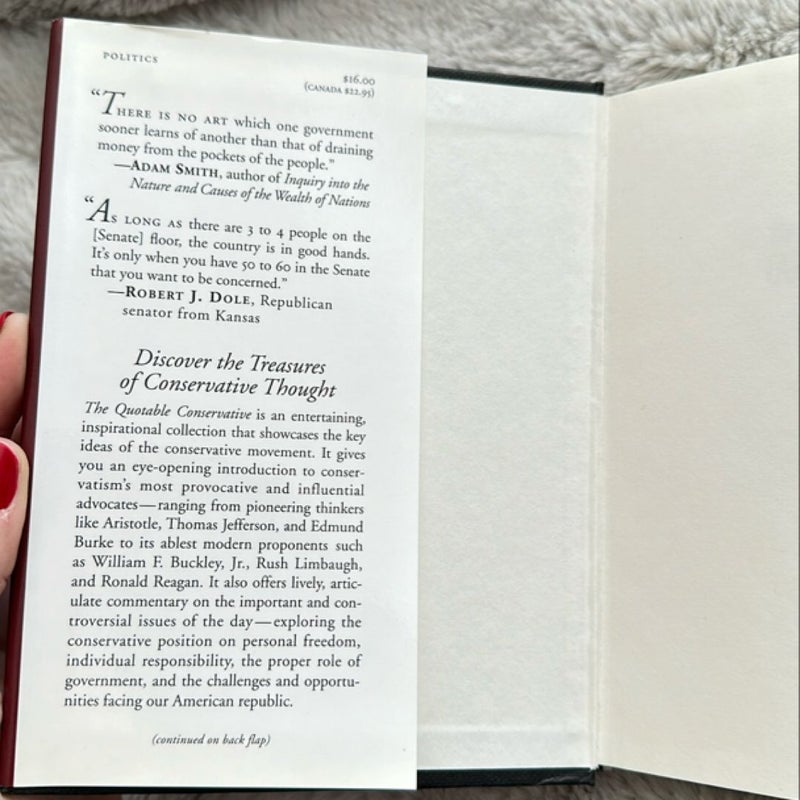 POLITICS
$16.00
(CANADA $22.95)
“THERE IS NO ART which one government
sooner learns of another than that of draining
money from the pockets of the people.”
—ADAM SMITH, author of Inquiry into the
Nature and Causes of the Wealth of Nations
“AS LONG AS there are 3 to 4 people on the
[Senate] floor, the country is in good hands.
It’s only when you have 50 to 60 in the Senate
that you want to be concerned.”
—ROBERT J. DOLE, Republican
senator from Kansas
Discover the Treasures
of Conservative Thought
The Quotable Conservative is an entertaining,
inspirational collection that showcases the key
ideas of the conservative movement. It gives
you an eye-opening introduction to conser-
vatism’s most provocative and influential
advocates—ranging from pioneering thinkers
like Aristotle, Thomas Jefferson, and Edmund
Burke to its ablest modern proponents such
as William F. Buckley, Jr., Rush Limbaugh,
and Ronald Reagan. It also offers lively, artic-
ulate commentary on the important and con-
troversial issues of the day—exploring the
conservative position on personal freedom,
individual responsibility, the proper role of
government, and the challenges and opportu-
nities facing our American republic.
(continued on back flap)